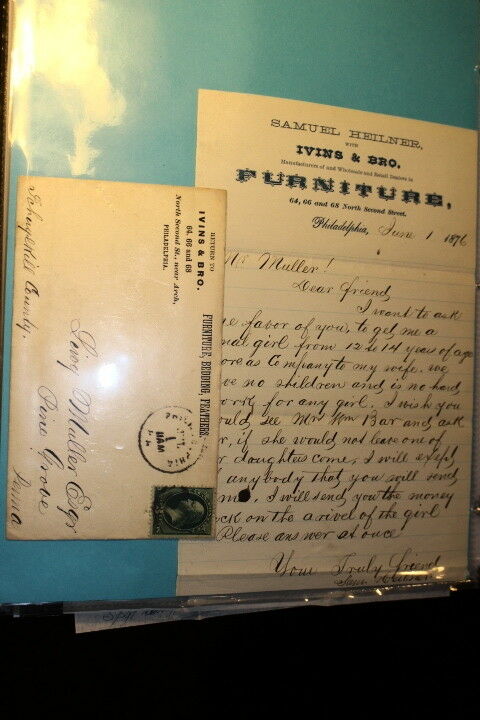 SAMUEL HEILNER,
WITH
IVINS & BRO.
Manufacturers of and Wholesale and Retail Dealers in
FURNITURE,
64, 66 and 68 North Second Street.
Philadelphia, June 1 1876
Mr Muller!
Dear friend
I want to ask
favor of you, to get me a
girl from 12 to 14 years of age
as Company to my wife. we
no children and is no hard
for any girl. I wish you
see Mrs Wm Bar and ask
if she would not leave one of
daughters come, I will
anybody that you will send
I will send you the money
on the arivel of the girl
Please answer at once
Your Truly friend
RETURN TO
IVINS & BRO.
64, 66 and 68
North Second St., near Arch,
PHILADELPHIA.
FURNITURE, BEDDING, FEATHERS,
1
8AM
Levy Muller Eqs
Pine Grove
Penna
County.